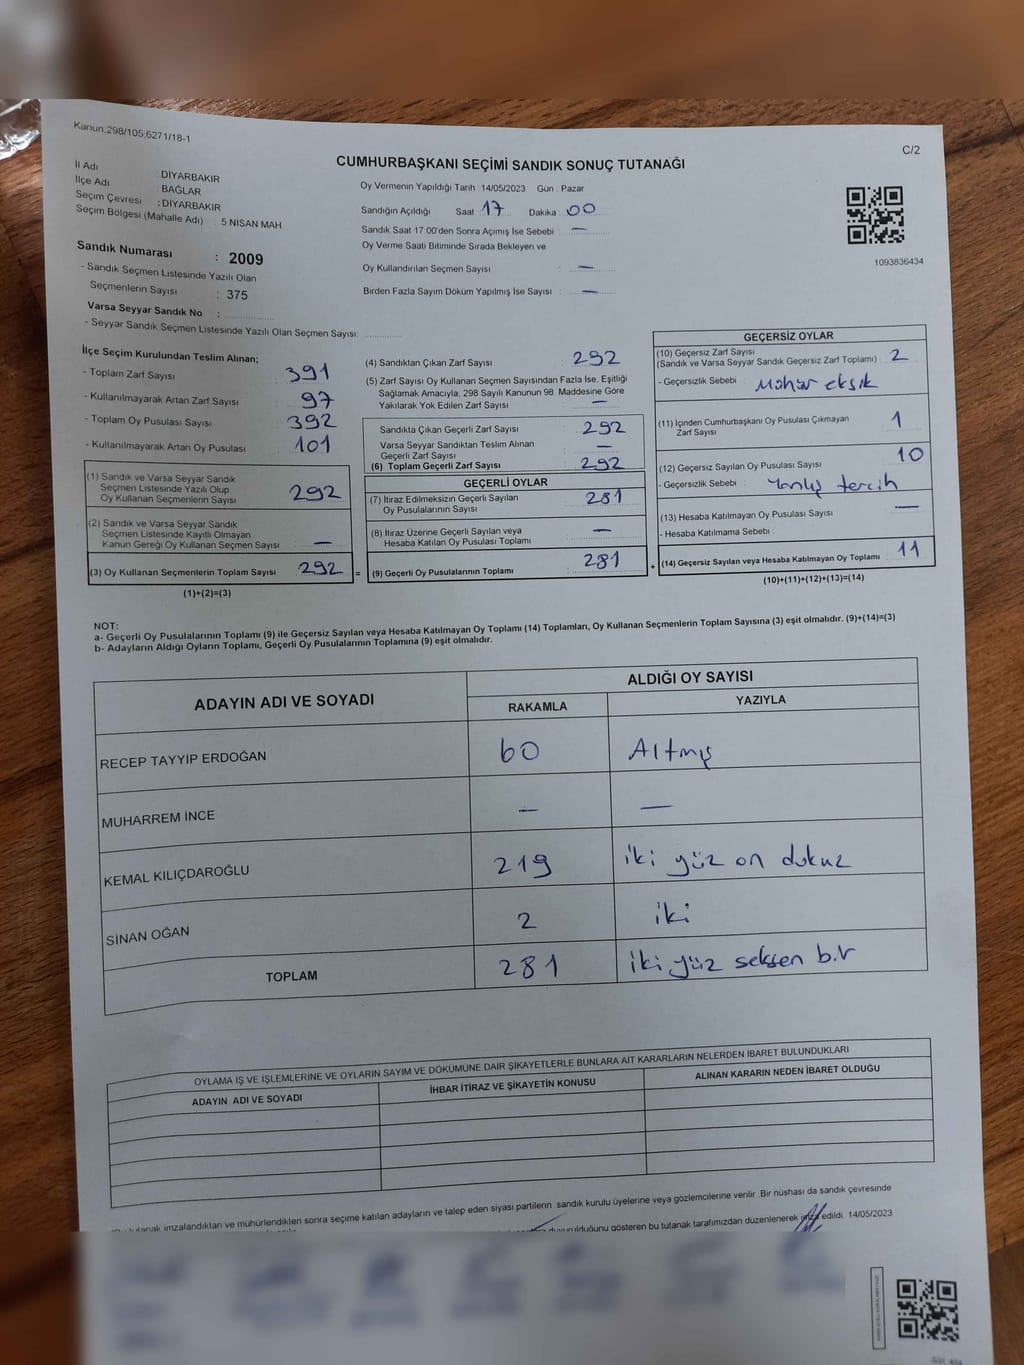 Kanun:298/105,6271/18-1
C/2
CUMHURBAŞKANI SEÇİMİ SANDIK SONUÇ TUTANAĞI
İl Adı DİYARBAKIR
İlçe Adı : BAĞLAR
Seçim Çevresi : DİYARBAKIR
Seçim Bölgesi (Mahalle Adı) : 5 NİSAN MAH.
Sandık Numarası : 2009
- Sandık Seçmen Listesinde Yazılı Olan
Seçmenlerin Sayısı : 375
Varsa Seyyar Sandık No :
- Seyyar Sandık Seçmen Listesinde Yazılı Olan Seçmen Sayısı:
Oy Vermenin Yapıldığı Tarih : 14/05/2023 Gün : Pazar
Sandığın Açıldığı Saat 17 Dakika 00
Sandık Saat 17:00'den Sonra Açımış İse Sebebi : —
Oy Verme Saati Bitiminde Sırada Bekleyen ve
Oy Kullandırılan Seçmen Sayısı : —
Birden Fazla Sayım Döküm Yapılmış İse Sayısı : —
1093836434
İlçe Seçim Kurulundan Teslim Alınan;
- Toplam Zarf Sayısı : 391
- Kullanılmayarak Artan Zarf Sayısı : 97
- Toplam Oy Pusulası Sayısı : 392
- Kullanılmayarak Artan Oy Pusulası : 101
(1) Sandık ve Varsa Seyyar Sandık
Seçmen Listesinde Yazılı Olup
Oy Kullanan Seçmenlerin Sayısı : 292
(2) Sandık ve Varsa Seyyar Sandık
Seçmen Listesinde Kayıtlı Olmayan
Kanun Gereği Oy Kullanan Seçmen Sayısı : —
(3) Oy Kullanan Seçmenlerin Toplam Sayısı : 292 =
(1)+(2)=(3)
(4) Sandıktan Çıkan Zarf Sayısı : 292
(5) Zarf Sayısı Oy Kullanan Seçmen Sayısından Fazla İse, Eşitliği
Sağlamak Amacıyla; 298 Sayılı Kanunun 98. Maddesine Göre
Yakılarak Yok Edilen Zarf Sayısı : —
Sandıkta Çıkan Geçerli Zarf Sayısı : 292
Varsa Seyyar Sandıktan Teslim Alınan
Geçerli Zarf Sayısı : —
(6) Toplam Geçerli Zarf Sayısı : 292
GEÇERLİ OYLAR
(7) İtiraz Edilmeksizin Geçerli Sayılan
Oy Pusulalarının Sayısı : 281
(8) İtiraz Üzerine Geçerli Sayılan veya
Hesaba Katılan Oy Pusulası Toplamı : —
(9) Geçerli Oy Pusulalarının Toplamı : 281 +
GEÇERSİZ OYLAR
(10) Geçersiz Zarf Sayısı
(Sandık ve Varsa Seyyar Sandık Geçersiz Zarf Toplamı) : 2
- Geçersizlik Sebebi : Mühür eksik
(11) İçinden Cumhurbaşkanı Oy Pusulası Çıkmayan
Zarf Sayısı 1
(12) Geçersiz Sayılan Oy Pusulası Sayısı 10
- Geçersizlik Sebebi : Yanlış tercih
(13) Hesaba Katılmayan Oy Pusulası Sayısı —
- Hesaba Katılmama Sebebi :
(14) Geçersiz Sayılan veya Hesaba Katılmayan Oy Toplamı : 11
(10)+(11)+(12)+(13)=(14)
NOT:
a- Geçerli Oy Pusulalarının Toplamı (9) ile Geçersiz Sayılan veya Hesaba Katılmayan Oy Toplamı (14) Toplamları, Oy Kullanan Seçmenlerin Toplam Sayısına (3) eşit olmalıdır. (9)+(14)=(3)
b- Adayların Aldığı Oyların Toplamı, Geçerli Oy Pusulalarının Toplamına (9) eşit olmalıdır.
ADAYIN ADI VE SOYADI
ALDIĞI OY SAYISI
RAKAMLA YAZIYLA
RECEP TAYYİP ERDOĞAN 60 Altmış
MUHARREM İNCE — —
KEMAL KILIÇDAROĞLU 219 iki yüz on dokuz
SİNAN OĞAN 2 iki
TOPLAM 281 iki yüz seksen bir
OYLAMA İŞ VE İŞLEMLERİNE VE OYLARIN SAYIM VE DÖKÜMÜNE DAİR ŞİKAYETLERLE BUNLARA AİT KARARLARIN NELERDEN İBARET BULUNDUKLARI
ADAYIN ADI VE SOYADI İHBAR İTİRAZ VE ŞİKAYETİN KONUSU ALINAN KARARIN NEDEN İBARET OLDUĞU
tutanak imzalandıktan ve mühürlendikten sonra seçime katılan adayların ve talep eden siyasi partilerin sandık kurulu üyelerine veya gözlemcilerine verilir .Bir nüshası da sandık çevresinde
duyurulduğunu gösteren bu tutanak tarafımızdan düzenlenerek imza edildi. 14/05/2023